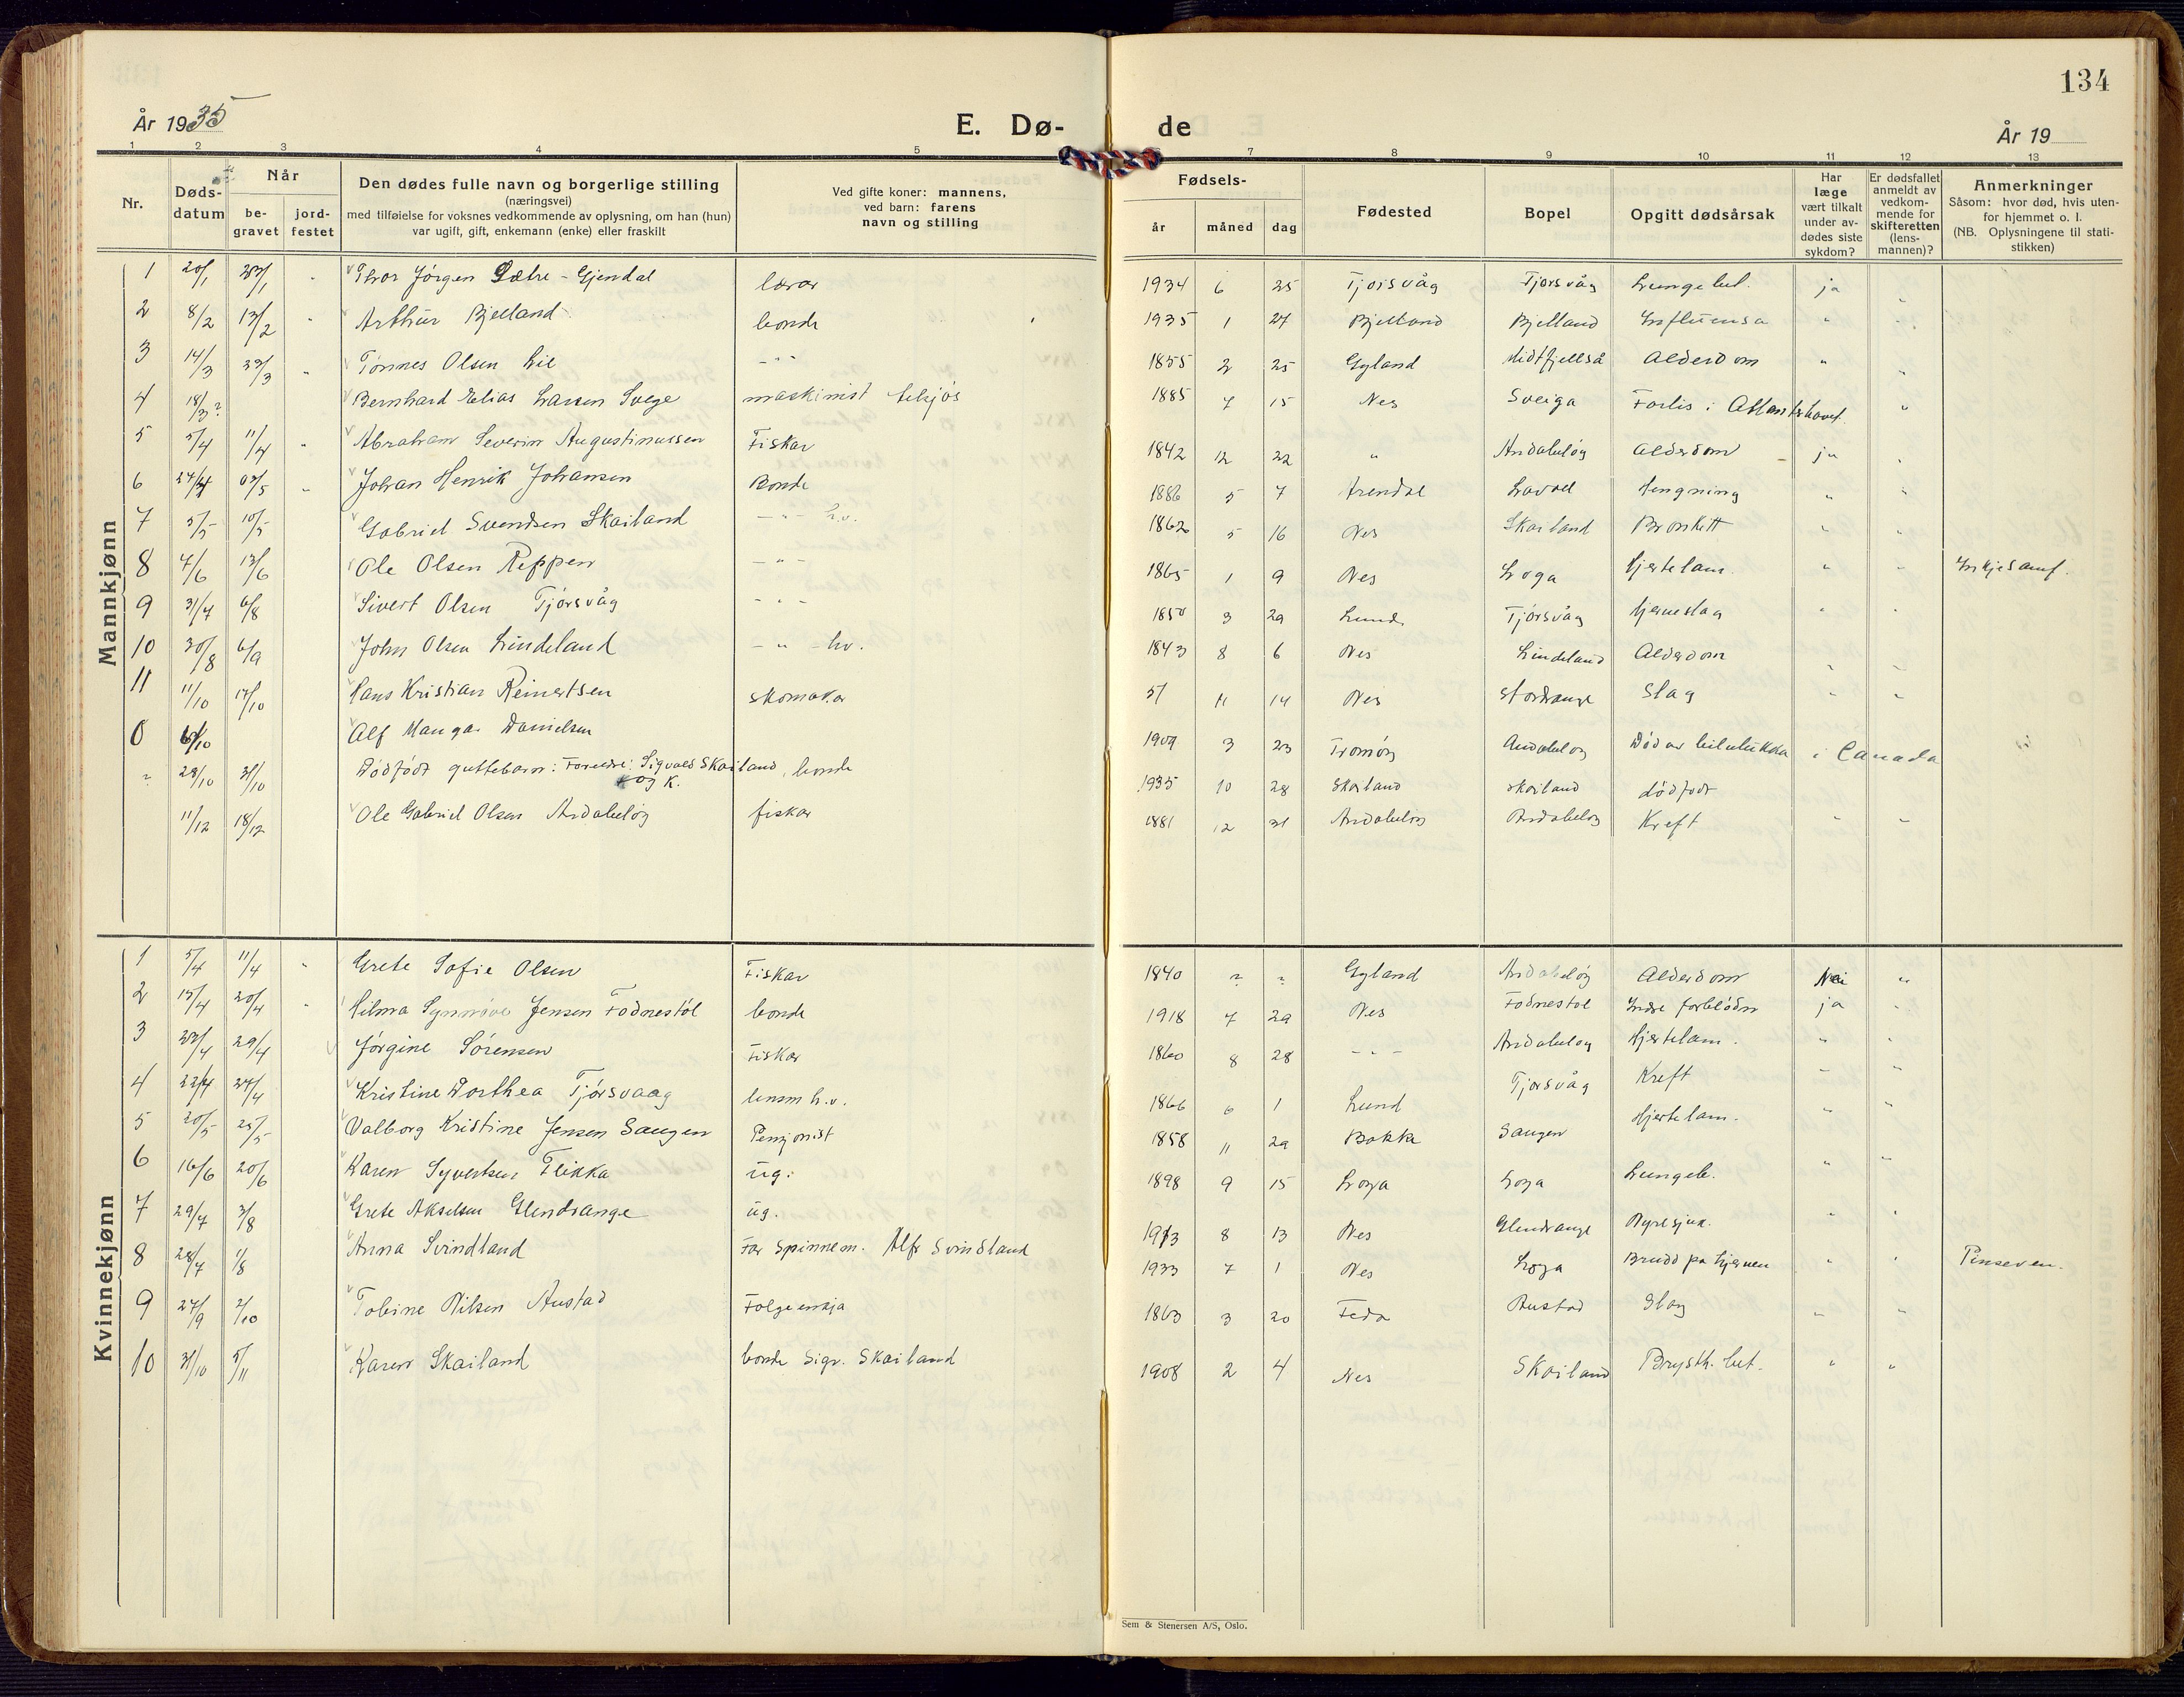 134
År 1935
E. Dø-
de
År 19
1 2 3 4 5 7 8 9 10 11 12 13
Nr.
Døds-
datum
Når
be-
gravet
jord-
festet
Den dødes fulle navn og borgerlige stilling
(næringsvei)
med tilføielse for voksnes vedkommende av oplysning, om han (hun)
var ugift, gift, enkemann (enke) eller fraskilt
Ved gifte koner: mannens,
ved barn: farens
navn og stilling
Fødsels-
år måned dag
Fødested
Bopel
Opgitt dødsårsak
Har
læge
vært tilkalt
under av-
dødes siste
sykdom?
Er dødsfallet
anmeldt av
vedkom-
mende for
skifteretten
(lens-
mannen)?
Anmerkninger
Såsom: hvor død, hvis uten-
for hjemmet o. l.
(NB. Oplysningene til stati-
stikken)
Mannkjønn
1 20/1 Thor Jørgen Sætre - Gjendal lærar 1934 6 25 Tjorsvåg Tjorsvåg Lungebet. ja "
2 8/2 13/2 " Arthur Bjelland bonde 1935 1 27 Bjelland Bjelland Influensa " "
3 14/3 23/3 " Tønnes Olsen Lie - " - 1855 2 25 Gyland Midtfjellså Alderdom " "
4 18/3? Bernhard Elias Larsen Svege maskinist tilsjøs 1885 7 15 Nes Sveiga Forlis i Atlanterhavet "
5 5/4 11/4 " Abraham Severin Augustinussen Fiskar 1842 12 22 " Andabeløy Alderdom ja "
6 Johan Henrik Johansen Bonde 1886 5 7 Arendal Lavoll Hengning " "
7 5/5 10/5 Gabriel Svendsen Skailand - " - h.v. 1862 5 16 Nes Skailand Bronkitt " "
8 7/6 13/6 Ole Olsen Reppen - " - 1865 1 9 Nes Loga Hjertelam. " " Inkjesamf.
9 31/7 6/8 Sivert Olsen Tjørsvåg - " - 1850 3 29 Lunde Tjørsvåg hjerneslag " "
10 30/8 6/9 John Olsen Lindeland - " - hv. 1843 8 6 Nes Lindeland Alderdom " "
11 11/10 17/10 Hans Kristian Reinertsen skomakar 57 11 14 Nes Stordrange Slag " "
0 Alf Mangar Danielsen 1909 3 23 Tromøy Andabeløy Død av bilulukka i Canada
" 28/10 31/10 Dødfødt guttebarn: Foreldre: Sigvald Skailand, bonde 1935 10 28 Skailand skailand dødfødt
og K.
11/12 18/12 Ole Gabriel Olsen Andabeløy fiskar 1881 12 31 Andabeløy Andabeløy Kreft " "
Kvinnekjønn
1 5/4 11/4 " Grete Sofie Olsen Fiskar 1840 ? ? Gyland Andabeløy Alderdom Nei "
2 15/4 20/4 " Hilma Synnøve Jensen Fodnestøl bonde 1918 7 29 Nes Fodnestøl Indre forblødn ja "
3 23/4 29/4 Jørgine Sørensen Fiskar 1860 8 28 - " - Andabeløy Hjertelam. " "
4 22/4 27/4 Kristine Dorthea Tjørsvaag lensm h.v. 1866 6 1 Lund Tjørsvåg Kreft " "
5 20/5 25/5 Valborg Kristine Jensen Saugen Pensjonist 1858 11 29 Bakke Saugen Hjertelam. " "
6 16/6 20/6 Karen Syvertsen Flikka ug. 1898 9 15 Loga Loga Lungeb. " "
7 29/7 3/8 Grete Akselsen Glendrange ug. 1913 8 13 Nes Glendrange Nyresjuk. " "
8 28/7 1/8 Anna Svindland Far Spinnem. Alfr Svindland 1933 7 1 Nes Loga Brudd på hjernen " " Pinseven.
9 27/9 2/10 Tobine Nilsen Austad Folgeenkja 1863 3 20 Feda Austad Slag " "
10 31/10 5/11 Karen Skailand bonde Sigv. Skailand 1908 2 4 Nes Skailand Brysth. bet. " "
Sem & Stenersen A/S, Oslo.